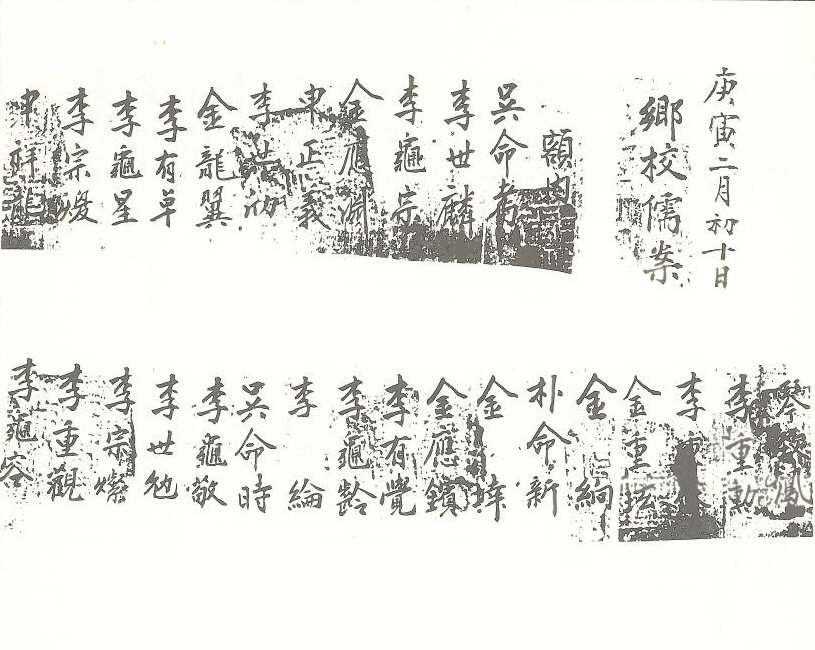 庚寅二月初十日
鄉校儒案
額內
吳命耉
李世麟
李龜宗
金應淵
申正義
李世
金龍翼
李有草
李龜星
李宗
申龍
李重勳
李重
金重
金絢
朴命新
金
金應鑌
李有覺
李龜齡
李綸
吳命時
李龜敬
李世勉
李宗燦
李重觀
李龜容